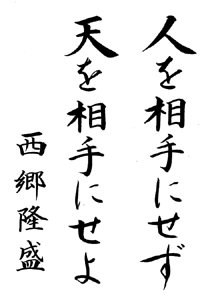 人を相手にせず
天を相手にせよ
西郷隆盛